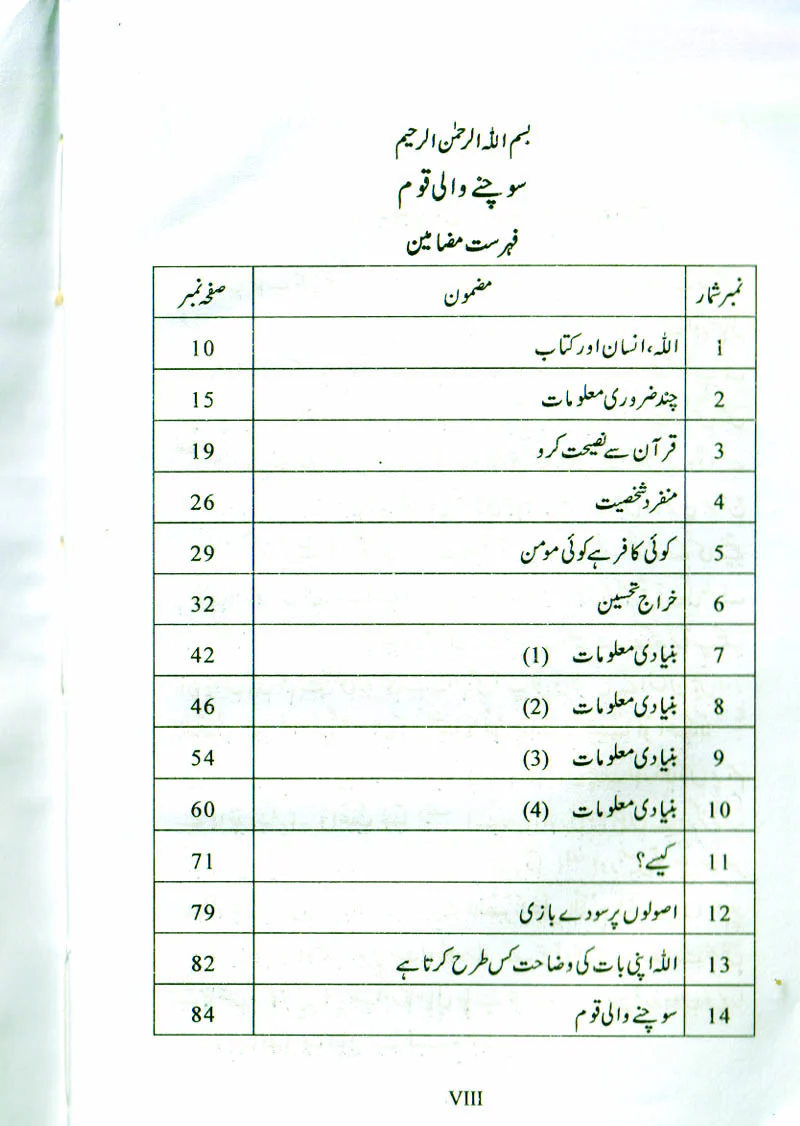 بسم اللہ الرحمٰن الرحیم
سوچنے والی قوم
فہرست مضامین
نمبر شمار مضمون صفحہ نمبر
1 اللہ، انسان اور کتاب 10
2 چند ضروری معلومات 15
3 قرآن سے نصیحت کرو 19
4 منفرد شخصیت 26
5 کوئی کافر ہے کوئی مومن 29
6 خراج تحسین 32
7 بنیادی معلومات (1) 42
8 بنیادی معلومات (2) 46
9 بنیادی معلومات (3) 54
10 بنیادی معلومات (4) 60
11 کیسے؟ 71
12 اصولوں پر سودے بازی 79
13 اللہ اپنی بات کی وضاحت کس طرح کرتا ہے 82
14 سوچنے والی قوم 84
VIII